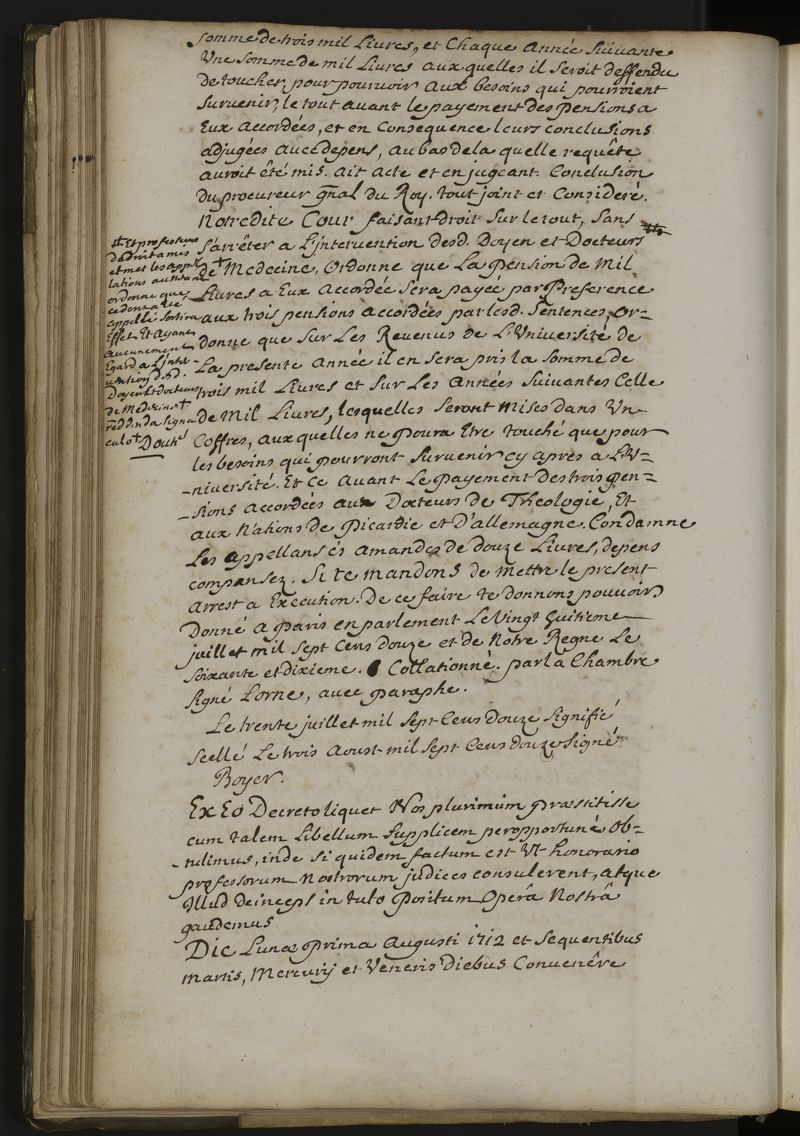 somme de trois mil Livres, et Chaque Année Suivante
Une Somme de mil Livres aux quelles il seroit deffendu
de toucher, pour pourvoir aux besoins qui pourroient
Survenir, le tout avant le payement des pensions a
Eux Accordées, et en Consequence leurs conclusions
adjugées avec depens, au bas de la quelle requête
auroit été mis. ait Acte et en jugeant. Conclusion
du procureur gñal du Roy. tout joint et Consideré.
Notredite Cour faisant droit Sur le tout, Sans
S'arrêter a L'jntervention desd. Doyen et Docteurs
de Medecine, Ordonne que La pension de Mil
Livres a Eux Accordée Sera payée par Preference
aux trois pensions accordées par lesd. Sentences, Or=
donne que Sur Les Revenus de L'Université de
La presente Année il en Sera pris la Somme de
trois mil Livres et Sur Les Années Suivantes Celle
de Mil Livres, lesquelles Seront Mises dans Un
Coffres, aux quelles ne poura Etre touché que pour
les besoins qui pourront Survenir cy après a L'U=
=niversité. Et ce Avant Le payement des trois pen=
=sions accordées aux Docteurs de Theologie, Et
aux Nations de Picardie et D'allemagne. Condamne
Les appellans és Amandes de douze Livres, depens
compensez. Si te mandons de mettre le present
Arrest a Execution. De ce faire te donnons pouvoir
Donné a Paris en parlement Le Vingt huitieme
juillet mil Sept Cens Douze et de Notre Regne Le
Soixante et dixieme. Collationné. par la Chambre
Signé Lorne, avec paraphe.
Le trente juillet mil Sept Cens Douze Signifié
Scellé Le trois Aoust mil Sept Cens douze Signé
Boyer.
Ex Eo Decreto liquet Nos plurimùm præstitisse
cum talem Libellum Supplicem peropportunè Ob=
=tulimus, inde Si quidem factum est Ut honorario
professorum Nostrorum judices consulerent, atque
Illud deinceps in tuto Positum Operâ Nostrâ
gaudemus
Die Lunæ prima Augusti 1712 et Sequentibus
Martis, Mercurij et Veneris Diebus Convenêre
Et professeurs
de droit a mis
et met les appel
lations au neant
ordonne que
ce dont a eté
appellé Sortira
Effet Et Ayant
aucunement
Egard a L'jnter
vention desd.
Doyen Et docteurs
de Medecine